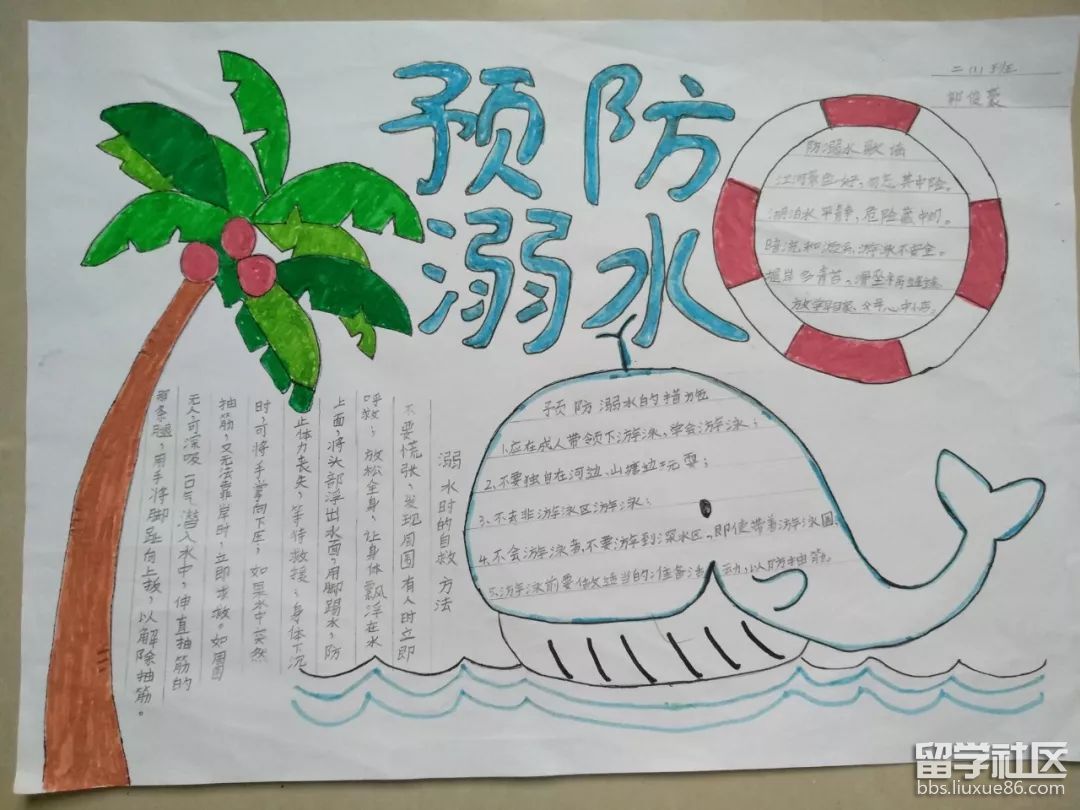 预防
溺水
二(1)班
郭俊豪
防溺水歌谣
江河景色好,勿忘其中险。
湖泊水平静,危险藏中间。
随流和游乐,游泳不安全。
堤岸多青苔,滑坠
放学早回家,父母心中
预防溺水的措施
1.应在成人带领下游泳,学会游泳;
2.不要独自在河边、山塘边玩耍;
3.不去非游泳区游泳;
4.不会游泳者,不要游到深水区,即使带着游泳圈.
5.游泳前要做适当的准备活动,以防抽筋。
溺水时的自救方法
不要慌张,发现周围有人时立即
呼救;放松全身,让身体飘浮在水
上面,将头部浮出水面,用脚踢水,防
止体力丧失,等待救援;身体下沉
时,可将手掌向下压;如果水中突然
抽筋,又无法靠岸时,立即求救。如周围
无人,可深吸一口气潜入水中,伸直抽筋的
那条腿,用手将脚趾向上扳,以解除抽筋。
留学社区
bbs.liuxue86.com